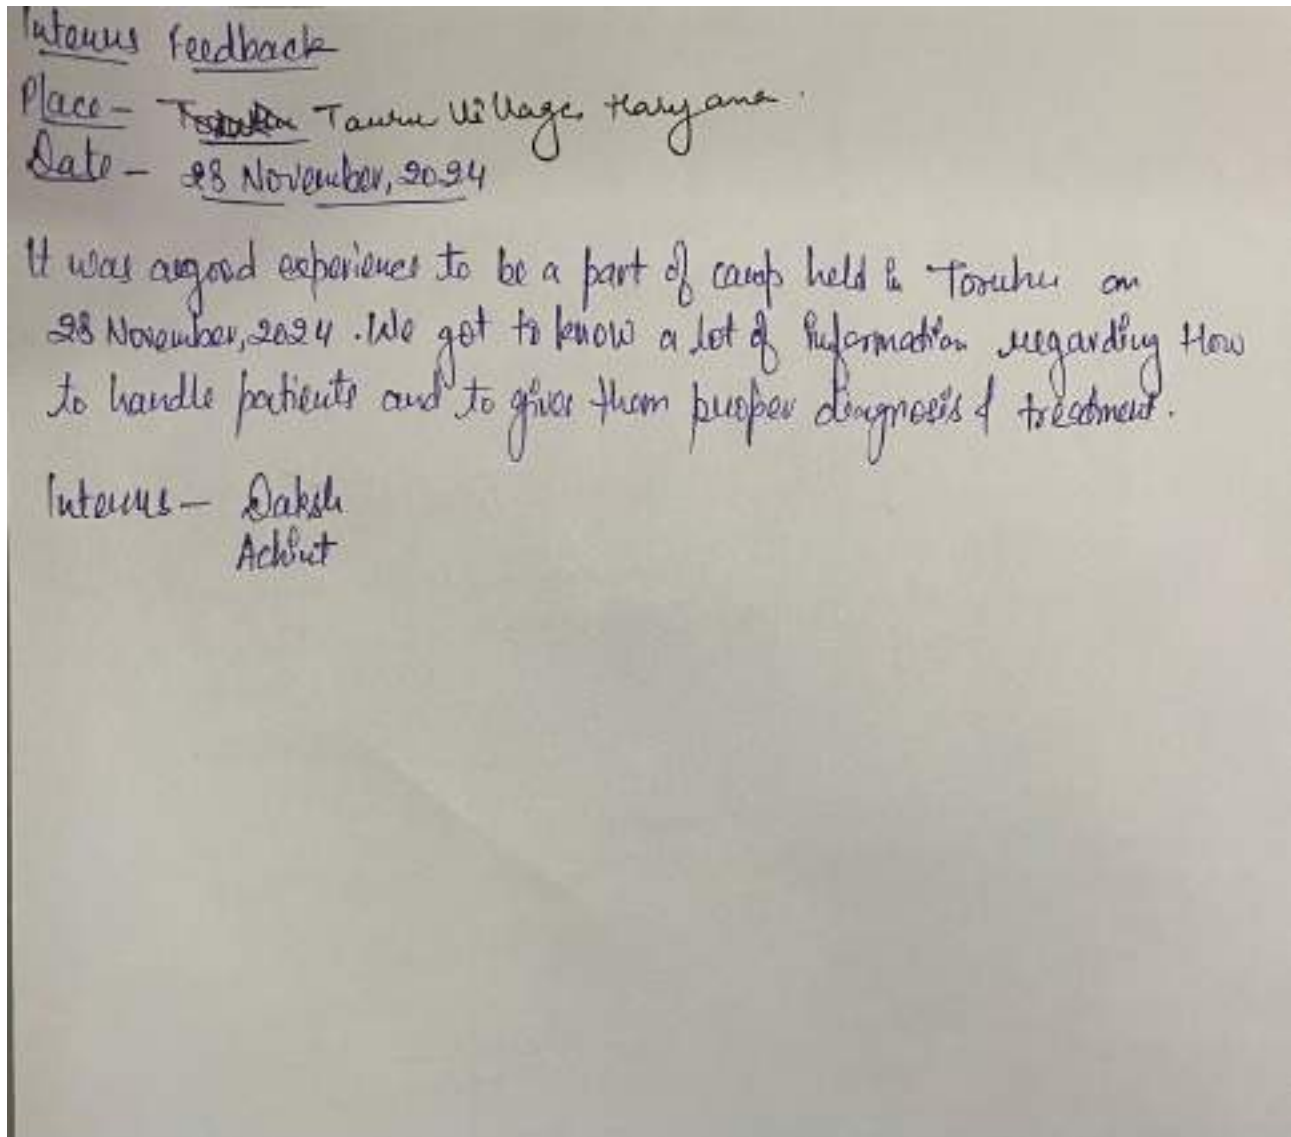 Interns Feedback
Place - Tauru Village, Haryana.
Date - 28 November, 2024
It was a good experience to be a part of camp held in Toruhu on
28 November, 2024. We got to know a lot of information regarding How
to handle patients and to give them proper diagnosis & treatment.
Interns - Daksh
Achint